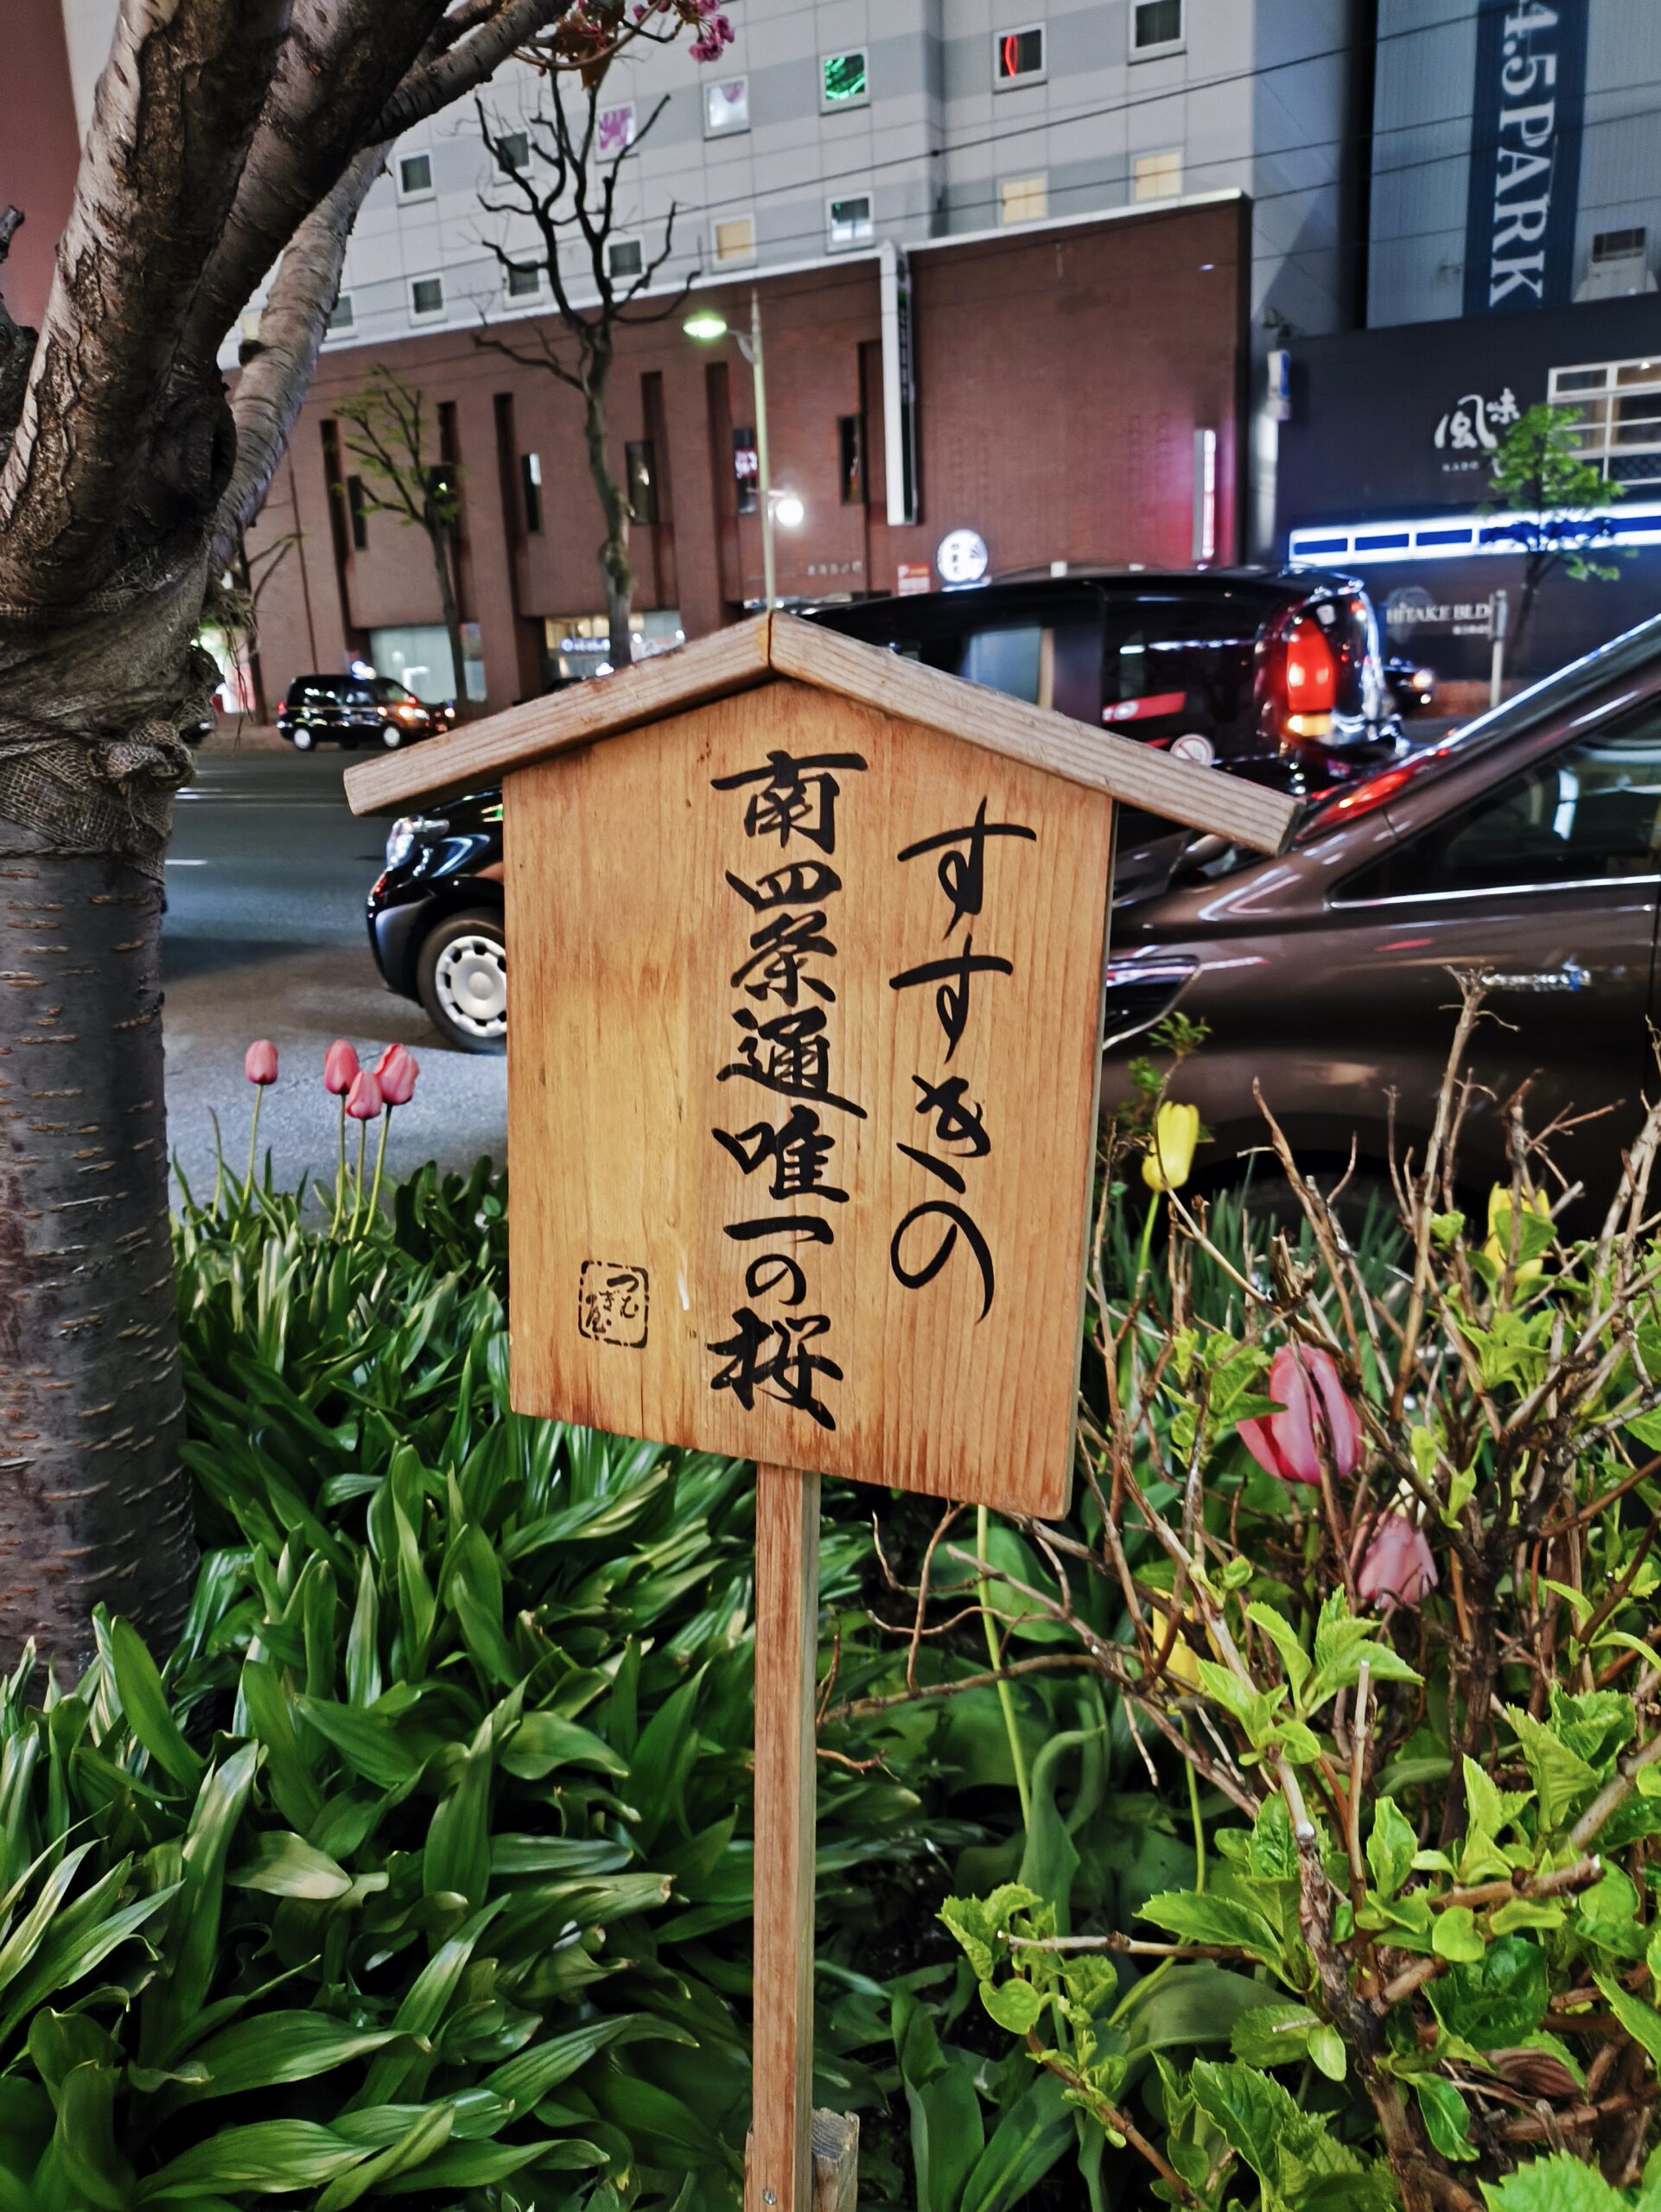 すすきの
南四条通唯一の桜
つむぎ屋
4.5PARK
風
KADO
HITAKE BLD